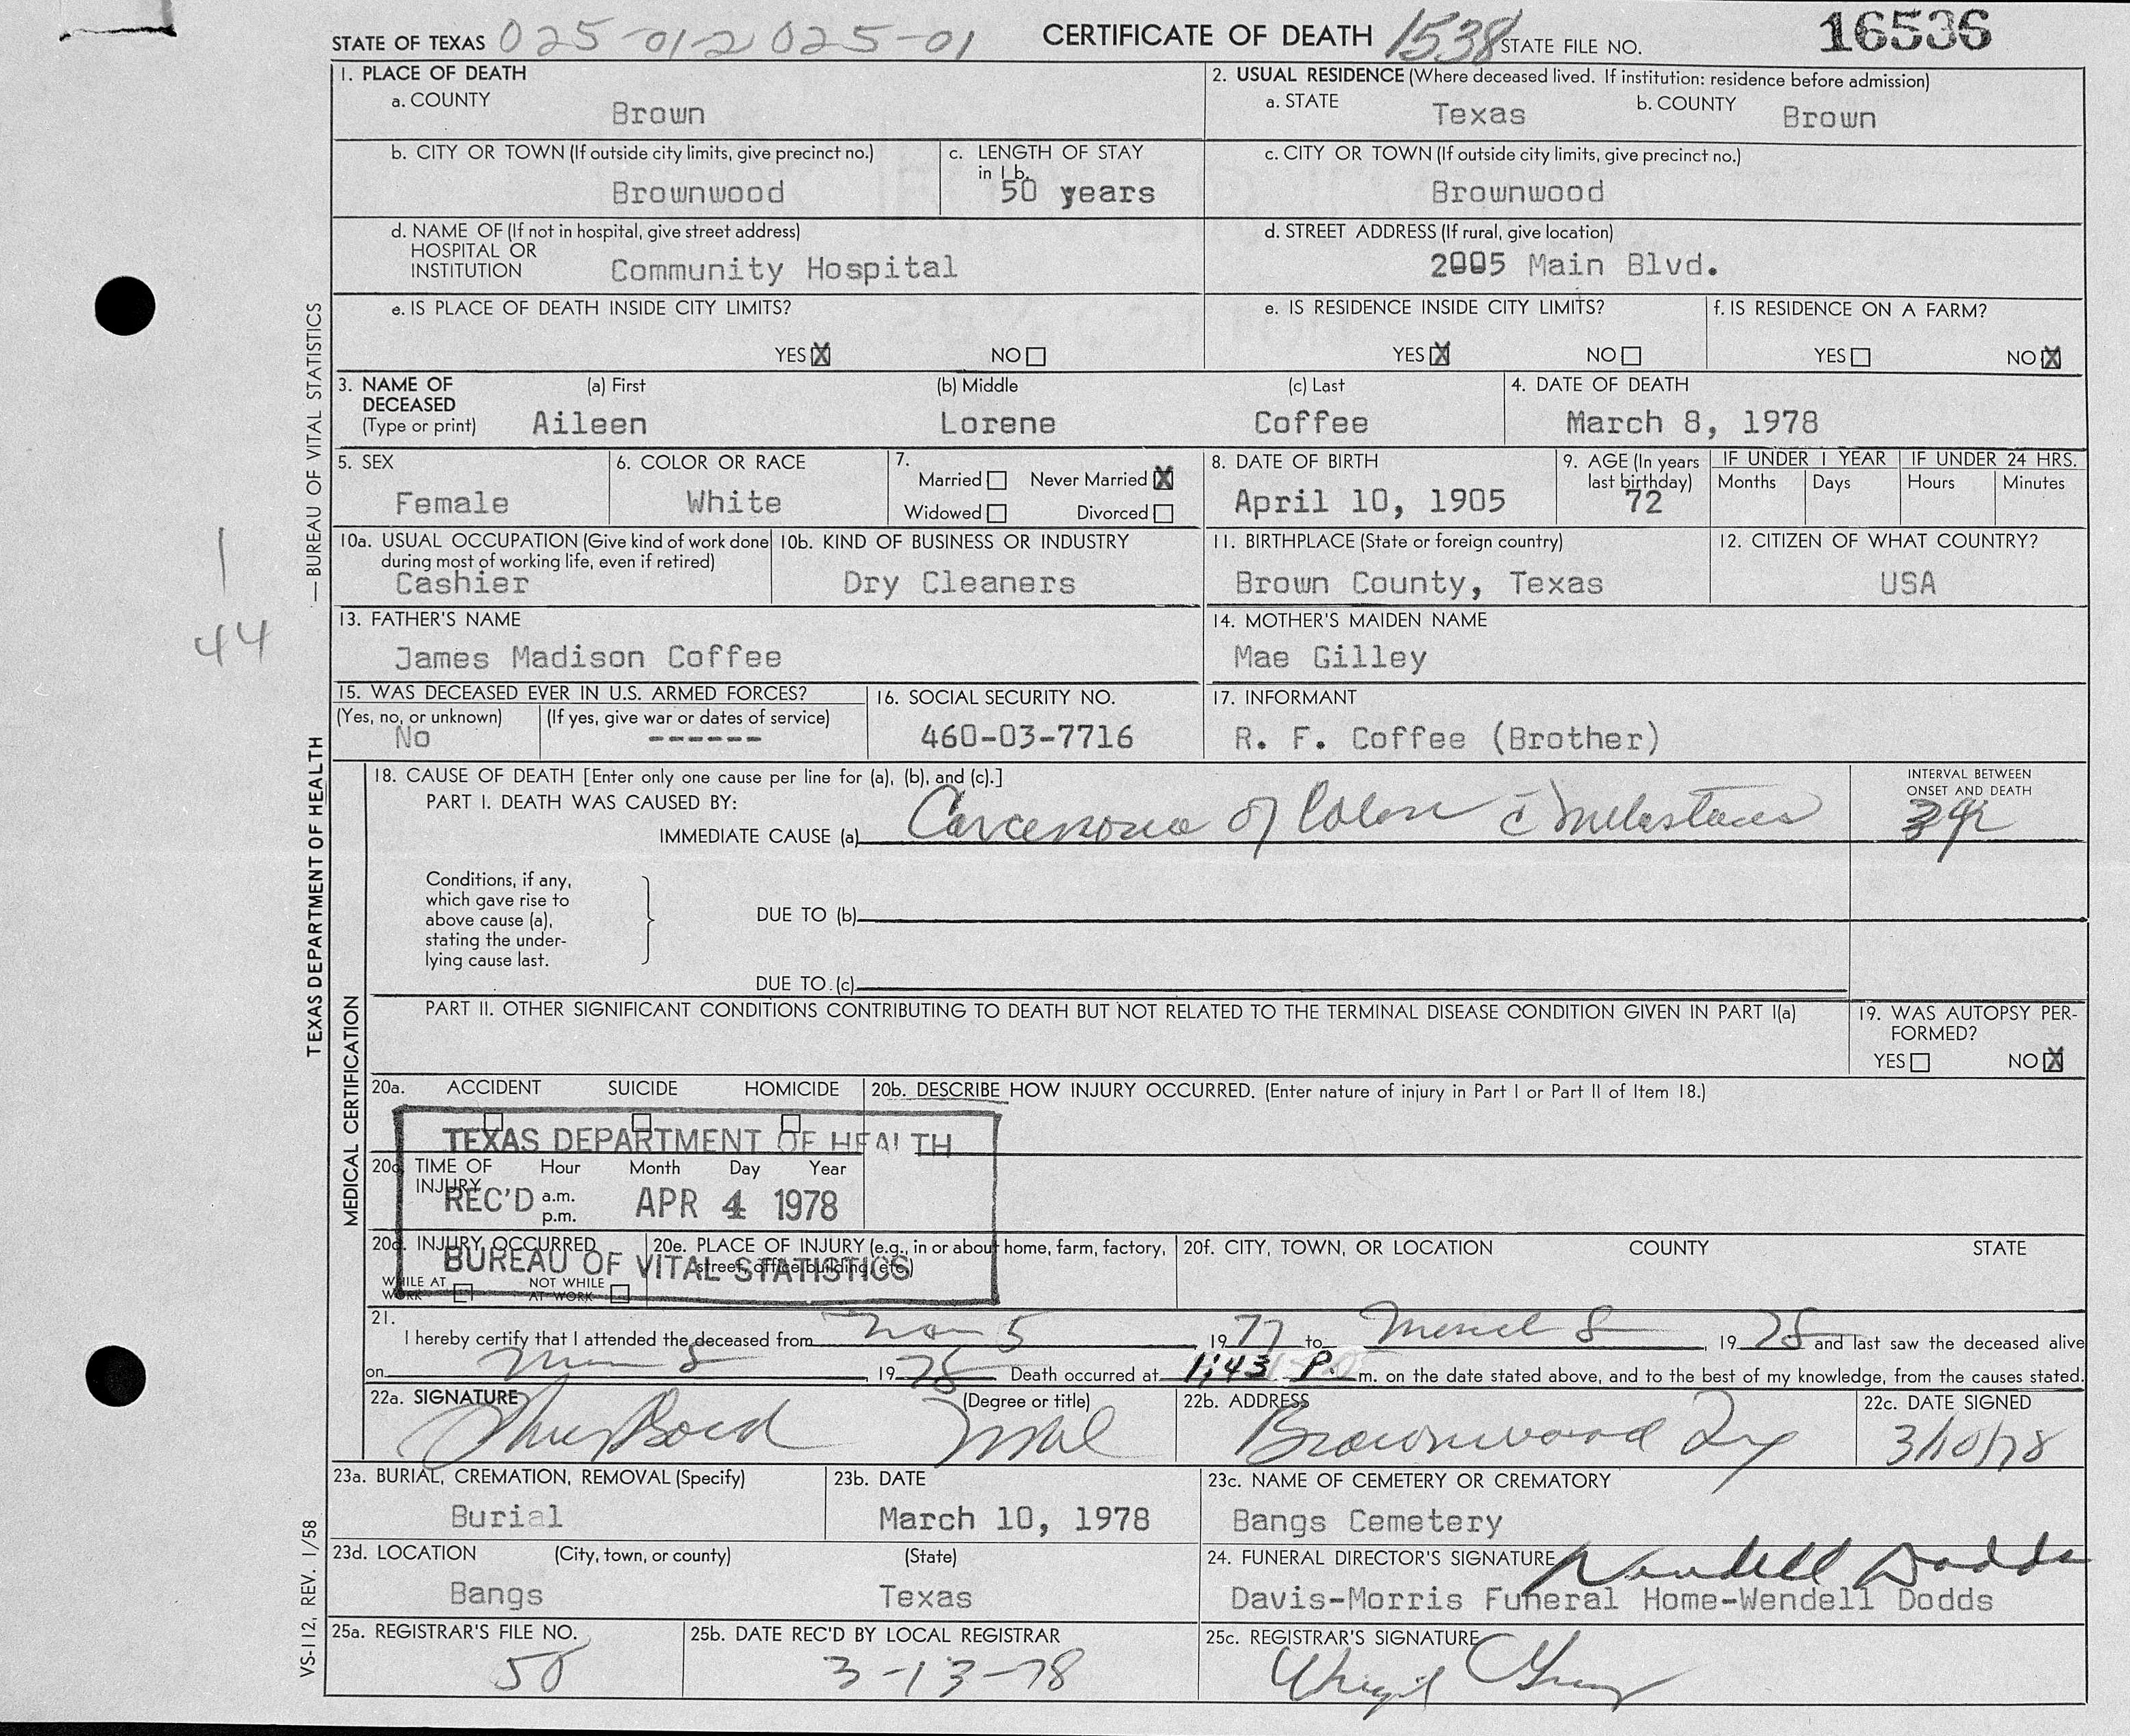 STATE OF TEXAS 025-012 025-01 CERTIFICATE OF DEATH 1538 STATE FILE NO. 16536
1. PLACE OF DEATH
a. COUNTY
Brown
2. USUAL RESIDENCE (Where deceased lived. If institution: residence before admission)
a. STATE
Texas
b. COUNTY
Brown
b. CITY OR TOWN (If outside city limits, give precinct no.)
Brownwood
c. LENGTH OF STAY
in 1 b.
50 years
c. CITY OR TOWN (If outside city limits, give precinct no.)
Brownwood
d. NAME OF (If not in hospital, give street address)
HOSPITAL OR
INSTITUTION
Community Hospital
d. STREET ADDRESS (If rural, give location)
2005 Main Blvd.
e. IS PLACE OF DEATH INSIDE CITY LIMITS?
YES X NO
e. IS RESIDENCE INSIDE CITY LIMITS?
YES X NO
f. IS RESIDENCE ON A FARM?
YES NO X
3. NAME OF
DECEASED
(Type or print)
(a) First
Aileen
(b) Middle
Lorene
(c) Last
Coffee
4. DATE OF DEATH
March 8, 1978
5. SEX
Female
6. COLOR OR RACE
White
7.
Married Never Married X
Widowed Divorced
8. DATE OF BIRTH
April 10, 1905
9. AGE (In years
last birthday)
72
IF UNDER 1 YEAR
Months Days
IF UNDER 24 HRS.
Hours Minutes
10a. USUAL OCCUPATION (Give kind of work done
during most of working life, even if retired)
Cashier
10b. KIND OF BUSINESS OR INDUSTRY
Dry Cleaners
11. BIRTHPLACE (State or foreign country)
Brown County, Texas
12. CITIZEN OF WHAT COUNTRY?
USA
13. FATHER'S NAME
James Madison Coffee
14. MOTHER'S MAIDEN NAME
Mae Gilley
15. WAS DECEASED EVER IN U.S. ARMED FORCES?
(Yes, no, or unknown)
No
(If yes, give war or dates of service)
------
16. SOCIAL SECURITY NO.
460-03-7716
17. INFORMANT
R. F. Coffee (Brother)
18. CAUSE OF DEATH [Enter only one cause per line for (a), (b), and (c).]
PART I. DEATH WAS CAUSED BY:
IMMEDIATE CAUSE (a) Carcenoma of Colon c̄
INTERVAL BETWEEN
ONSET AND DEATH
Conditions, if any,
which gave rise to
above cause (a),
stating the under-
lying cause last.
DUE TO (b)
DUE TO (c)
PART II. OTHER SIGNIFICANT CONDITIONS CONTRIBUTING TO DEATH BUT NOT RELATED TO THE TERMINAL DISEASE CONDITION GIVEN IN PART I(a)
19. WAS AUTOPSY PER-
FORMED?
YES NO X
20a. ACCIDENT SUICIDE HOMICIDE
20b. DESCRIBE HOW INJURY OCCURRED. (Enter nature of injury in Part I or Part II of Item 18.)
TEXAS DEPARTMENT OF HEALTH
20c. TIME OF
INJURY
Hour Month Day Year
a.m.
p.m.
REC'D APR 4 1978
20d. INJURY OCCURRED
WHILE AT
WORK
NOT WHILE
AT WORK
BUREAU OF VITAL STATISTICS
20e. PLACE OF INJURY (e.g., in or about home, farm, factory,
street, office building, etc.)
20f. CITY, TOWN, OR LOCATION COUNTY STATE
21.
I hereby certify that I attended the deceased from 5, 1977 to March 8, 1978 and last saw the deceased alive
on 8, 1978 Death occurred at 1:43 P. m. on the date stated above, and to the best of my knowledge, from the causes stated.
22a. SIGNATURE
(Degree or title)
22b. ADDRESS
Brownwood Tx
22c. DATE SIGNED
3/10/78
23a. BURIAL, CREMATION, REMOVAL (Specify)
Burial
23b. DATE
March 10, 1978
23c. NAME OF CEMETERY OR CREMATORY
Bangs Cemetery
23d. LOCATION (City, town, or county) (State)
Bangs Texas
24. FUNERAL DIRECTOR'S SIGNATURE Wendell Dodds
Davis-Morris Funeral Home-Wendell Dodds
25a. REGISTRAR'S FILE NO.
50
25b. DATE REC'D BY LOCAL REGISTRAR
3-13-78
25c. REGISTRAR'S SIGNATURE
1
44
TEXAS DEPARTMENT OF HEALTH — BUREAU OF VITAL STATISTICS
MEDICAL CERTIFICATION
VS-112, REV. 1/58